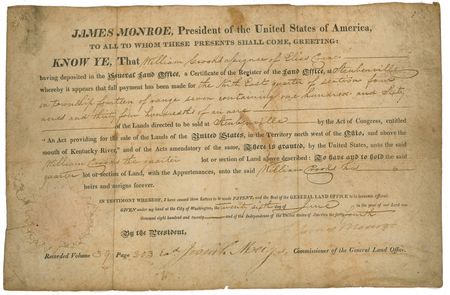 JAMES MONROE, President of the United States of America,
TO ALL TO WHOM THESE PRESENTS SHALL COME, GREETING:
KNOW YE, That William Crooks assignee of Elias
having deposited in the General Land Office, a Certificate of the Register of the Land Office, at Steubenville
whereby it appears that full payment has been made for the North East quarter of section four
in township fourteen of range seven containing one hundred and sixty
acres and thirty four hundredths of an acre
of the Lands directed to be sold at Steubenville by the Act of Congress, entitled
"An Act providing for the sale of the Lands of the United States, in the Territory north west of the Ohio, and above the
mouth of Kentucky River," and of the Acts amendatory of the same, There is granted, by the United States, unto the said
William Crooks the quarter lot or section of Land above described: To have and to hold the said
quarter lot or section of Land, with the Appurtenances, unto the said William Crooks his
heirs and assigns forever.
IN TESTIMONY WHEREOF, I have caused these Letters to be made PATENT, and the Seal of the GENERAL LAND OFFICE to be hereunto affixed.
GIVEN under my hand at the City of Washington, the twenty sixth day of June in the year of our Lord one
thousand eight hundred and twenty and of the Independence of the United States of America the forty fourth
By the President, James Monroe
Recorded Volume 39 Page 303 Josiah Meigs Commissioner of the General Land Office.